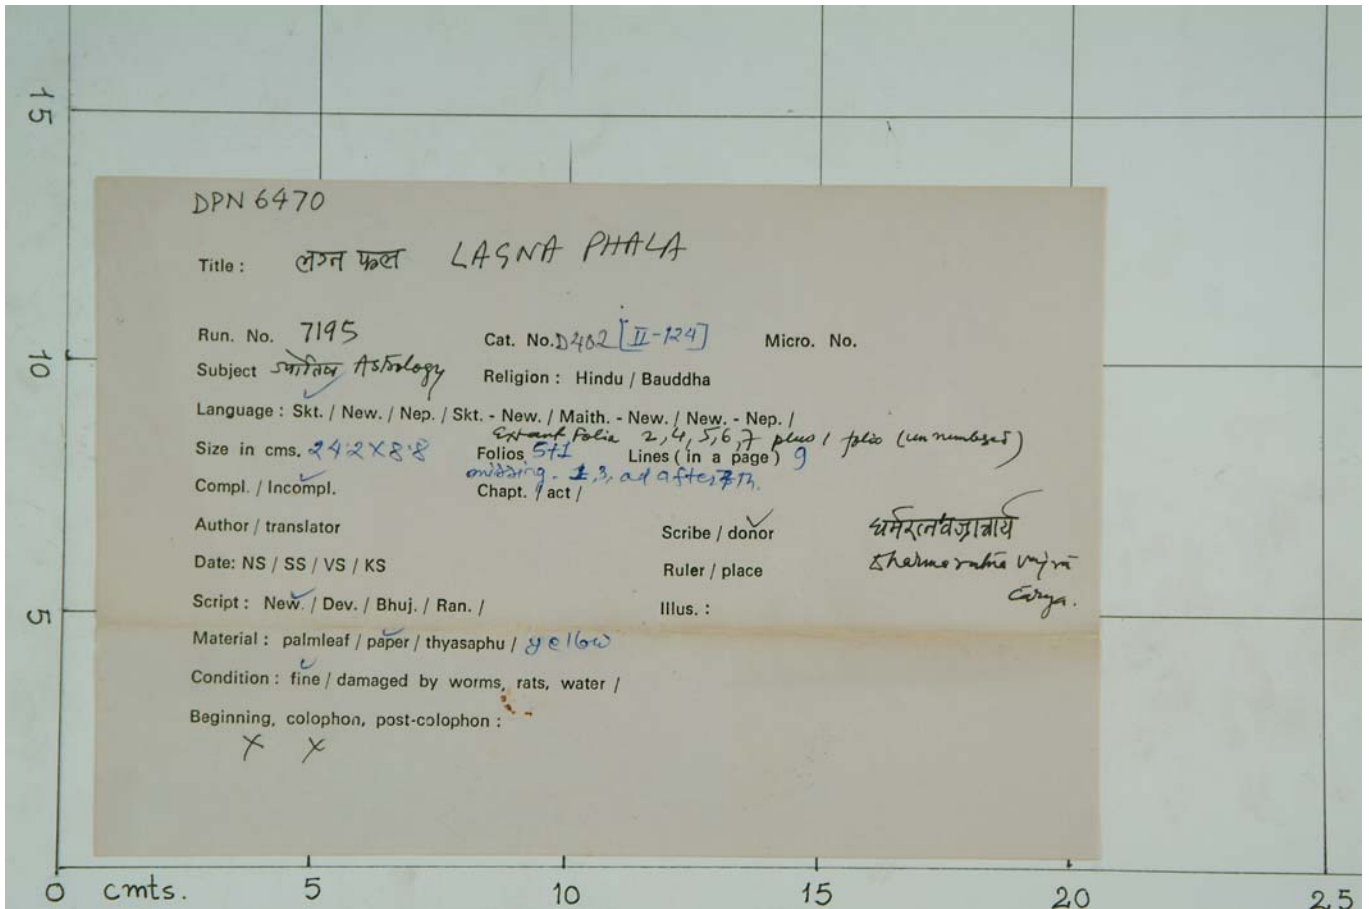 15
DPN 6470
Title : लग्न फल LAGNA PHALA
Run. No. 7195 Cat. No. D402 [II-124] Micro. No.
10
Subject ज्योतिष Astrology Religion : Hindu / Bauddha
Language : Skt. / New. / Nep. / Skt. - New. / Maith. - New. / New. - Nep. /
Extant folia 2, 4, 5, 6, 7 plus 1 folio (unnumbered)
Size in cms. 24.2 X 8.8 Folios 5+1 Lines ( in a page ) 9
missing. 1, 3, ad after 7th.
Compl. / Incompl. Chapt. / act /
Author / translator Scribe / donor धर्मरत्न वज्राचार्य
Date: NS / SS / VS / KS Ruler / place Dharmaratna vajra
carya.
Script : New. / Dev. / Bhuj. / Ran. / Illus. :
5
Material : palmleaf / paper / thyasaphu / yellow
Condition : fine / damaged by worms, rats, water /
Beginning, colophon, post-colophon :
X X
0 cmts. 5 10 15 20 25